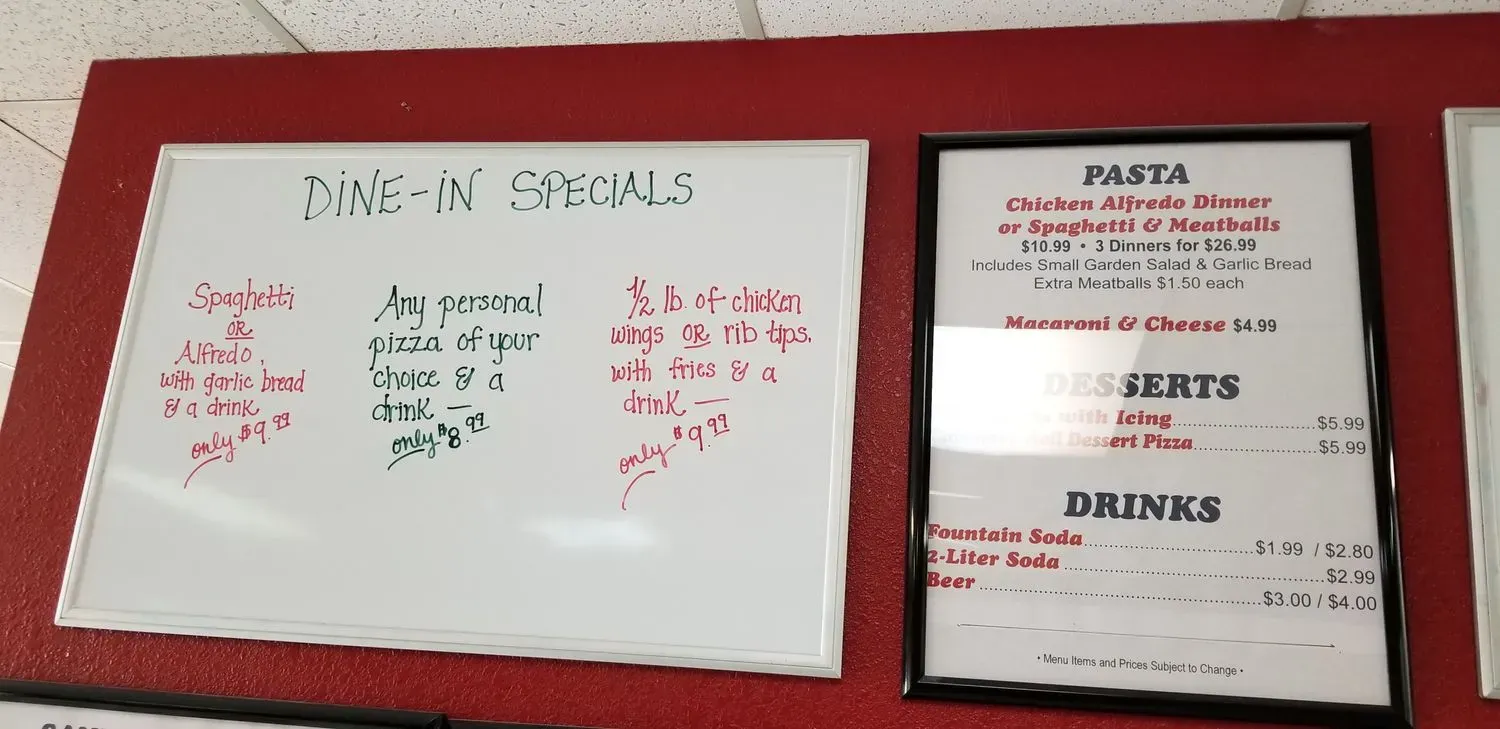 DINE-IN SPECIALS
Spaghetti
OR
Alfredo,
with garlic bread
& a drink
only $9.99
Any personal
pizza of your
choice & a
drink —
only $8.99
1/2 lb. of chicken
wings OR rib tips.
with fries & a
drink —
only $9.99
PASTA
Chicken Alfredo Dinner
or Spaghetti & Meatballs
$10.99 • 3 Dinners for $26.99
Includes Small Garden Salad & Garlic Bread
Extra Meatballs $1.50 each
Macaroni & Cheese $4.99
DESSERTS
with Icing..............................$5.99
Dessert Pizza..........................$5.99
DRINKS
Fountain Soda..............................$1.99 / $2.80
2-Liter Soda..............................$2.99
Beer..............................$3.00 / $4.00
• Menu Items and Prices Subject to Change •